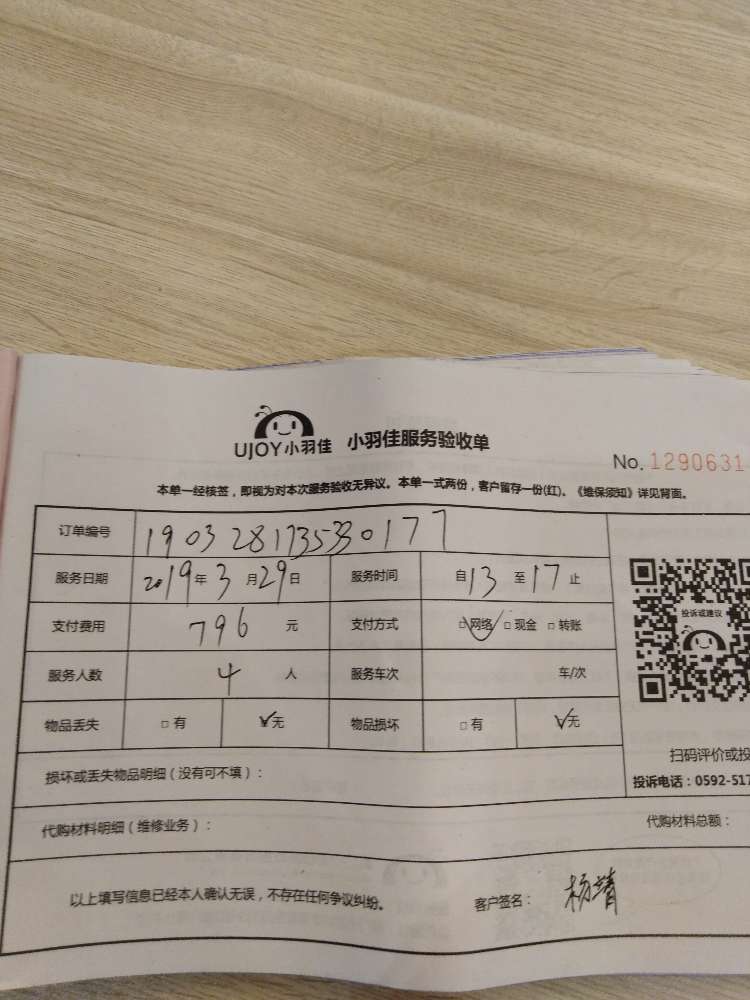 UJOY小羽佳 小羽佳服务验收单
No. 1290631
本单一经核签，即视为对本次服务验收无异议。本单一式两份，客户留存一份(红)。《维保须知》详见背面。
订单编号 1903281735330177
服务日期 2019年3月29日 服务时间 自13至17止
支付费用 796元 支付方式 □网络 □现金 □转账
服务人数 4人 服务车次 车/次
物品丢失 □有 ☑无 物品损坏 □有 ☑无
投诉或建议
扫码评价或投
投诉电话：0592-517
损坏或丢失物品明细（没有可不填）：
代购材料明细（维修业务）： 代购材料总额：
以上填写信息已经本人确认无误，不存在任何争议纠纷。 客户签名：杨靖